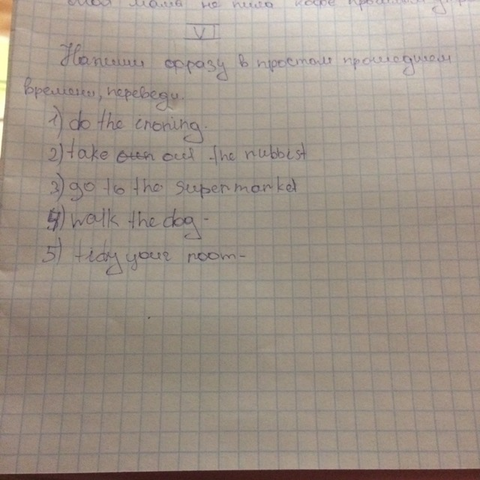 мама не пила кофе прошлым
VI
Напиши фразу в простом прошедшем
времени, переведи.
1) do the croning.
2) take out the rubbest
3) go to the supermarket
4) walk the dog-
5) tidy your room-